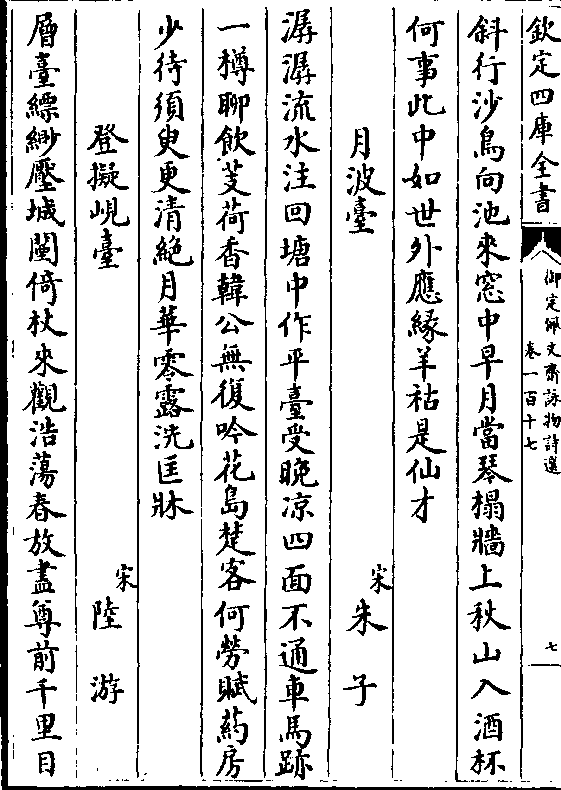 欽定四庫全書
御定佩文齋詠物詩選
卷一百十七
七
斜行沙鳥向池來窓中早月當琴榻牆上秋山入酒杯
何事此中如世外應緣羊祜是仙才
月波臺
宋朱子
潺潺流水注回塘中作平臺受晚凉四面不通車馬跡
一樽聊飲芰荷香韓公無復吟花島楚客何勞賦葯房
少待須臾更清絶月華零露洗匡牀
登擬峴臺
宋陸游
層臺縹緲壓城闉倚杖來觀浩蕩春放盡尊前千里目